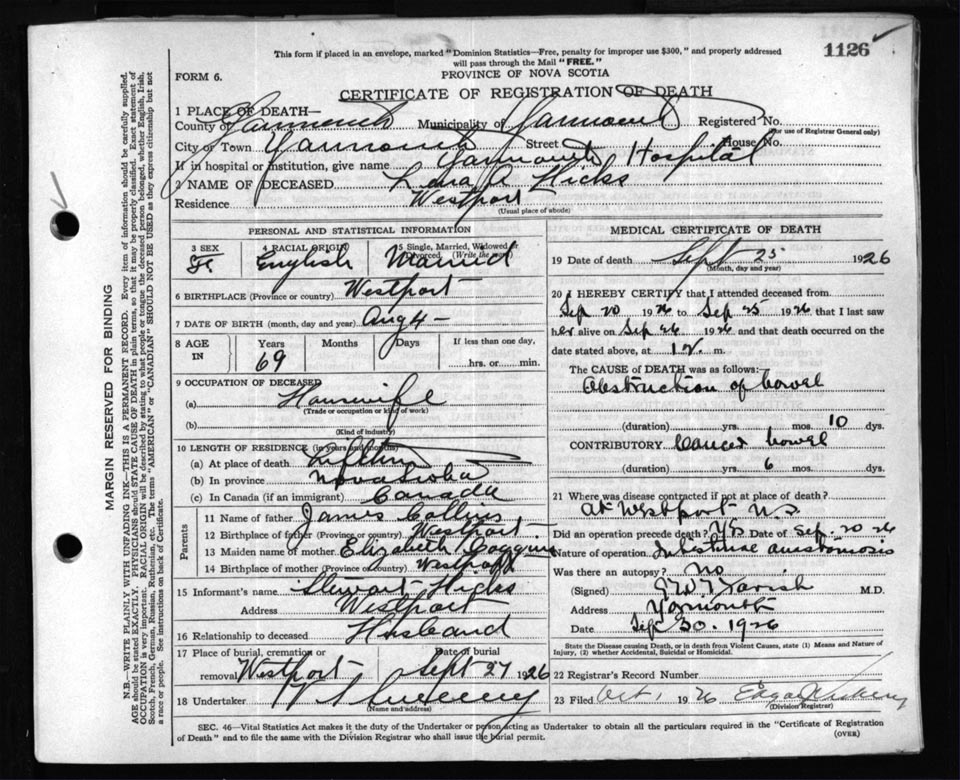 1126
This form if placed in an envelope, marked "Dominion Statistics—Free, penalty for improper use $300," and properly addressed
will pass through the Mail "FREE."
FORM 6.
PROVINCE OF NOVA SCOTIA
CERTIFICATE OF REGISTRATION OF DEATH
1 PLACE OF DEATH—
County of Yarmouth Municipality of Yarmouth Registered No.
(For use of Registrar General only)
City or Town Yarmouth Street House No.
If in hospital or institution, give name Yarmouth Hospital
2 NAME OF DECEASED A Hicks
Residence Westport
(Usual place of abode)
PERSONAL AND STATISTICAL INFORMATION
3 SEX
4 RACIAL ORIGIN English
5 Single, Married, Widowed or
Divorced (Write the word)
Married
6 BIRTHPLACE (Province or country) Westport
7 DATE OF BIRTH (month, day and year) Aug 4 —
8 AGE IN
Years Months Days If less than one day,
69 hrs. or min.
9 OCCUPATION OF DECEASED
(a) Housewife
(Trade or occupation or kind of work)
(b)
(Kind of industry)
10 LENGTH OF RESIDENCE (in years and months)
(a) At place of death
(b) In province Nova Scotia
(c) In Canada (if an immigrant) Canada
Parents
11 Name of father James Collins
12 Birthplace of father (Province or country) Westport
13 Maiden name of mother Elizabeth Coggins
14 Birthplace of mother (Province or country) Westport
15 Informant's name Stewart Hicks
Address Westport
16 Relationship to deceased Husband
17 Place of burial, cremation or removal Westport
Date of burial Sept 27 1926
18 Undertaker
(Name and address)
MEDICAL CERTIFICATE OF DEATH
19 Date of death Sept 25 1926
(Month, day and year)
20 I HEREBY CERTIFY that I attended deceased from
Sep 20 1926 to Sep 25 1926 that I last saw
her alive on Sep 26 1926 and that death occurred on
date stated above, at 12 m.
The CAUSE of DEATH was as follows:
Obstruction of bowel
(duration) yrs. mos. 10 dys.
CONTRIBUTORY Cancer bowel
(duration) yrs. 6 mos. dys.
21 Where was disease contracted if not at place of death?
At Westport N.S.
Did an operation precede death? Yes Date of Sep. 20 26
Nature of operation. Intestine anastomosis
Was there an autopsy? No
(Signed) M.D.
Address Yarmouth
Date Sep 30. 1926
State the Disease causing Death, or in death from Violent Causes, state (1) Means and Nature of
Injury, (2) whether Accidental, Suicidal or Homicidal.
22 Registrar's Record Number
23 Filed Oct 1 1926
(Division Registrar)
SEC. 46—Vital Statistics Act makes it the duty of the Undertaker or person acting as Undertaker to obtain all the particulars required in the "Certificate of Registration
of Death" and to file the same with the Division Registrar who shall issue the burial permit.
(OVER)
MARGIN RESERVED FOR BINDING
N.B.—WRITE PLAINLY WITH UNFADING INK—THIS IS A PERMANENT RECORD. Every item of information should be carefully supplied.
AGE should be stated EXACTLY. PHYSICIANS should STATE CAUSE OF DEATH in plain terms, so that it may be properly classified. Exact statement of
OCCUPATION is very important. RACIAL ORIGIN will be described by stating to what people or tongue the deceased person belonged, whether English, Irish,
Scotch, French, German, Russian, Ruthenian, etc. The terms "AMERICAN" or "CANADIAN" SHOULD NOT BE USED as they express citizenship but not
a race or people. See instructions on back of Certificate.